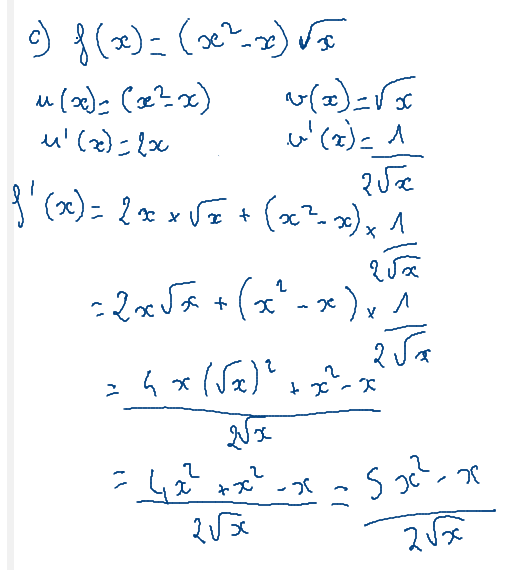 c) f(x) = (x² - x) √x
u(x) = (x² - x) v(x) = √x
u'(x) = 2x v'(x) = 1/(2√x)
f'(x) = 2x × √x + (x² - x) × 1/(2√x)
= 2x√x + (x² - x) × 1/(2√x)
= (4x(√x)² + x² - x)/(2√x)
= (4x² + x² - x)/(2√x) = (5x² - x)/(2√x)